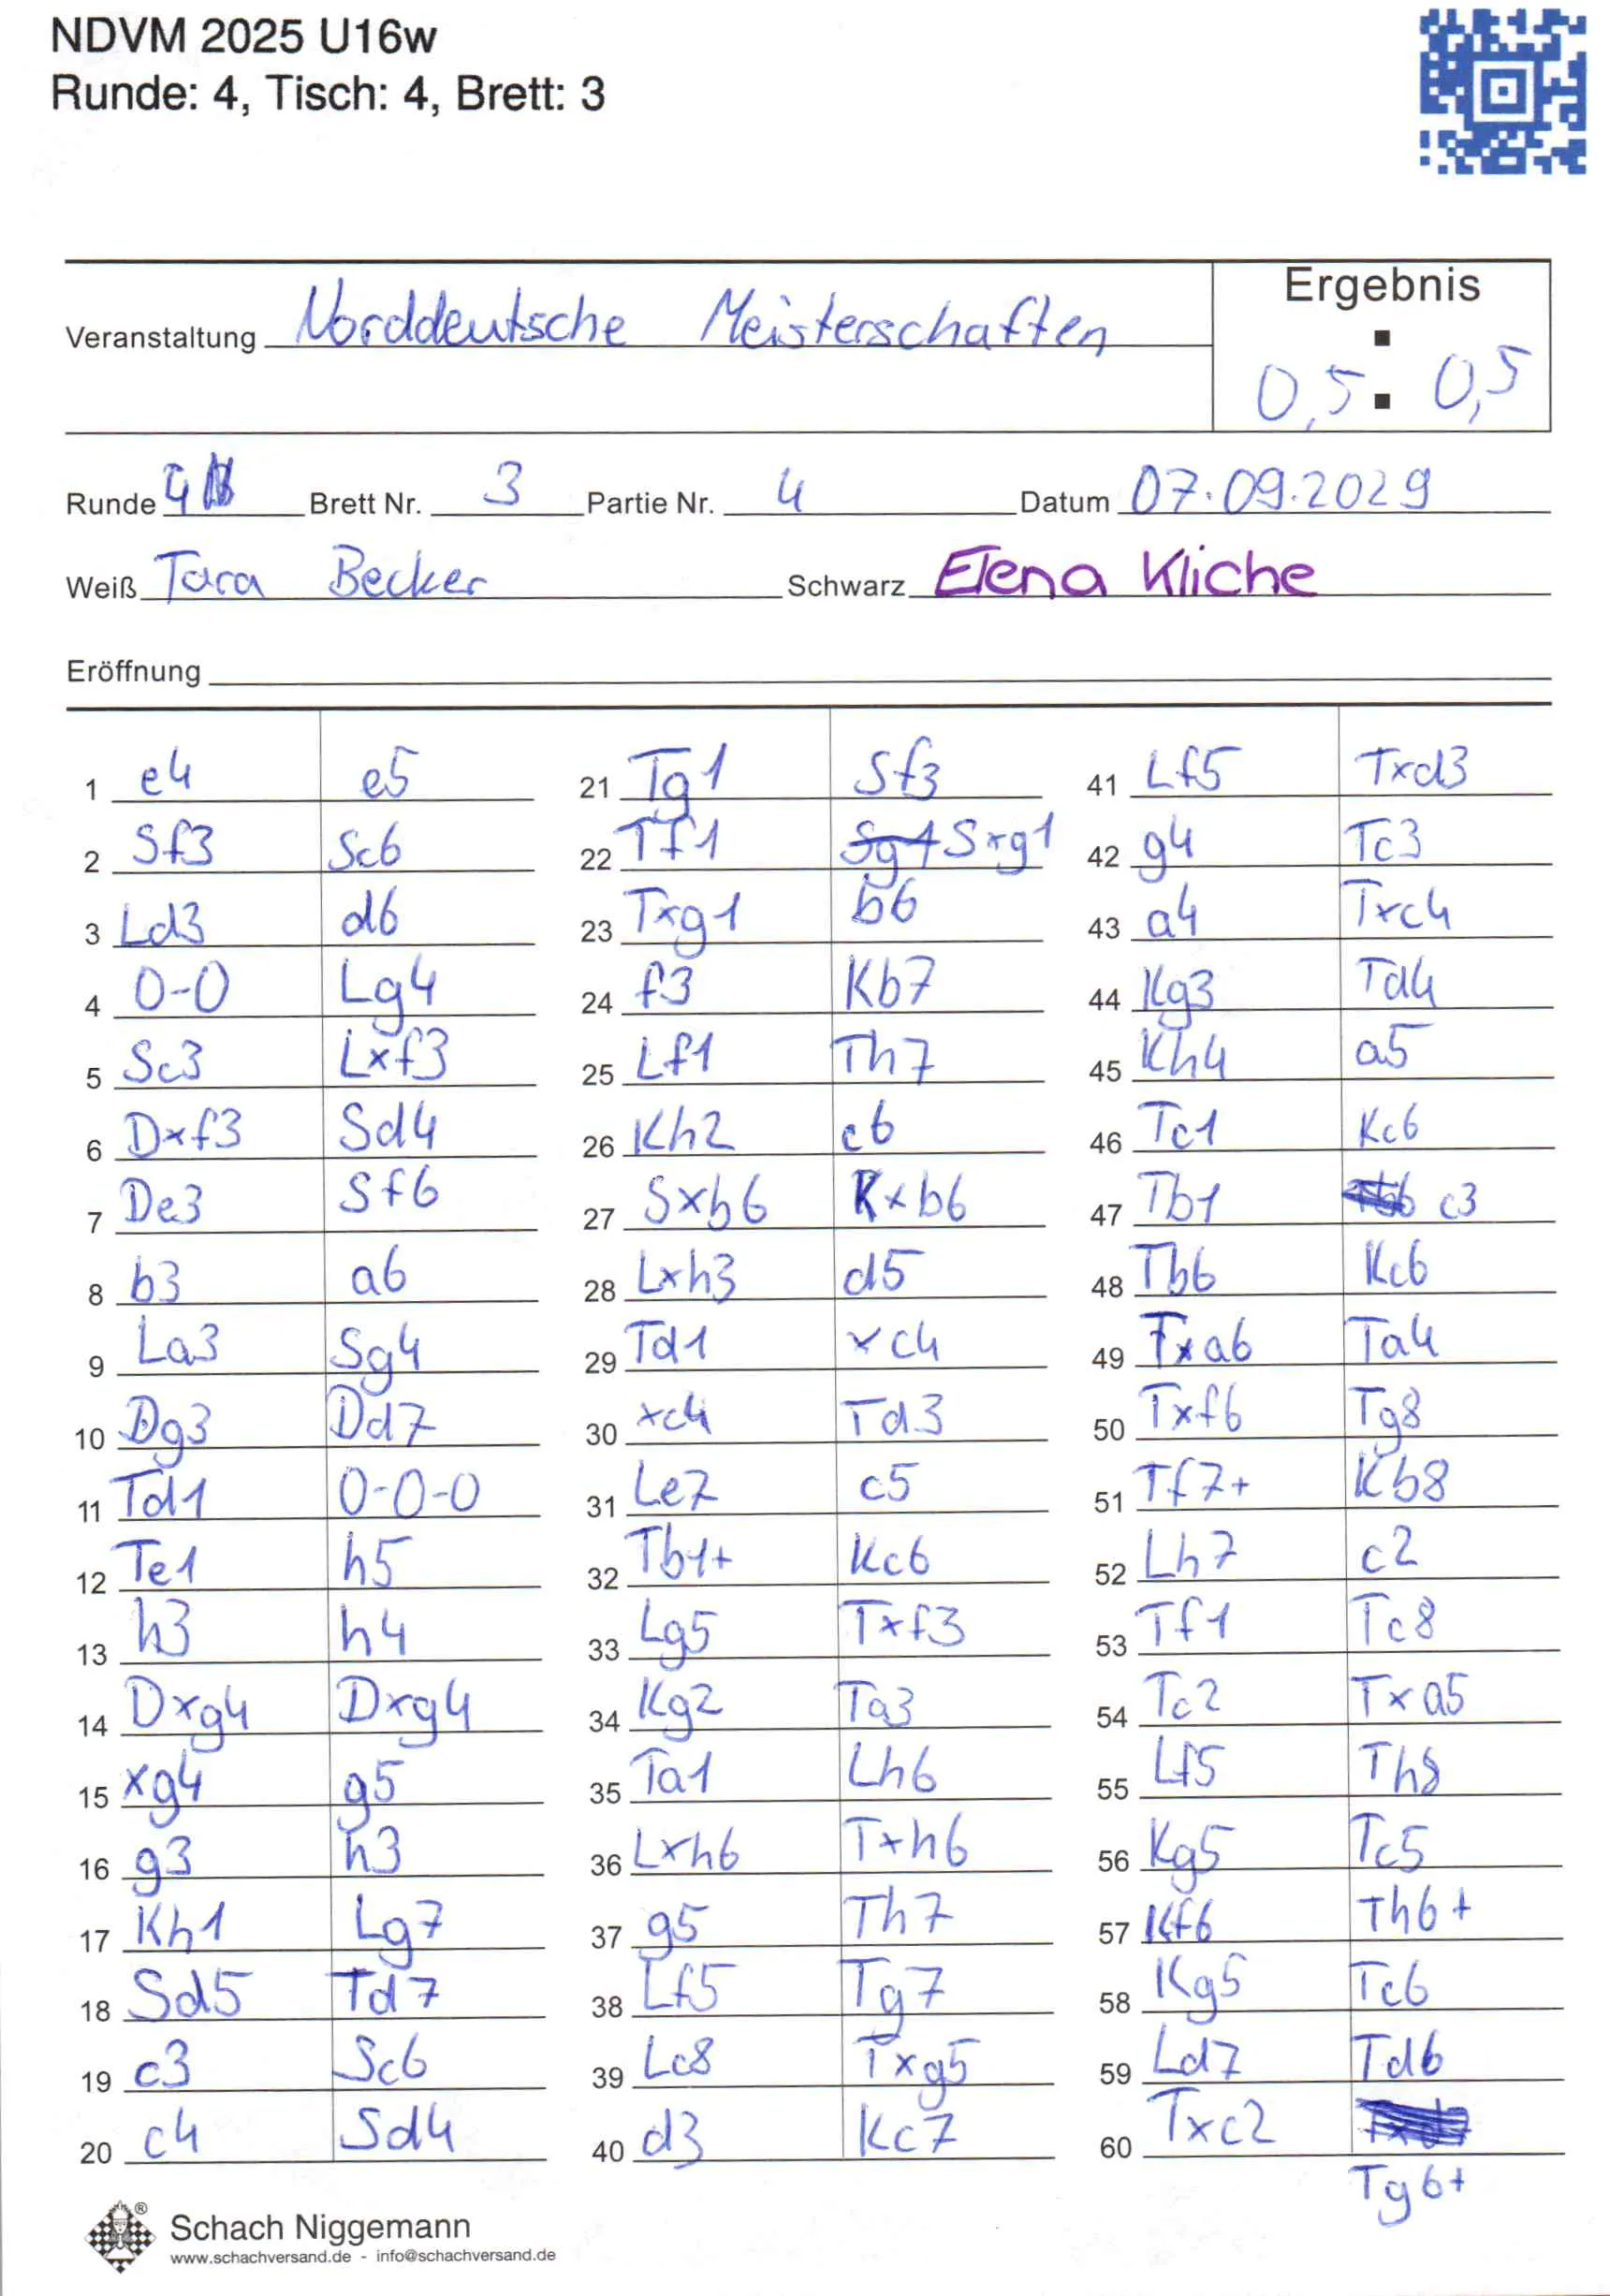 NDVM 2025 U16w
Runde: 4, Tisch: 4, Brett: 3
Ergebnis
Veranstaltung Norddeutsche Meisterschaften
0,5 : 0,5
Runde 4 Brett Nr. 3 Partie Nr. 4 Datum 07.09.2029
Weiß Tara Becker Schwarz Elena Kliche
Eröffnung
1 e4 e5
2 Sf3 Sc6
3 Ld3 d6
4 0-0 Lg4
5 Sc3 Lxf3
6 Dxf3 Sd4
7 De3 Sf6
8 b3 a6
9 La3 Sg4
10 Dg3 Dd7
11 Td1 0-0-0
12 Te1 h5
13 h3 h4
14 Dxg4 Dxg4
15 xg4 g5
16 g3 h3
17 Kh1 Lg7
18 Sd5 Td7
19 c3 Sc6
20 c4 Sd4
21 Tg1 Sf3
22 Tf1 Sg1 Sxg1
23 Txg1 b6
24 f3 Kb7
25 Lf1 Th7
26 Kh2 c6
27 Sxb6 Kxb6
28 Lxh3 d5
29 Td1 xc4
30 xc4 Td3
31 Le7 c5
32 Tb1+ Kc6
33 Lg5 Txf3
34 Kg2 Ta3
35 Ta1 Lh6
36 Lxh6 Txh6
37 g5 Th7
38 Lf5 Tg7
39 Lc8 Txg5
40 d3 Kc7
41 Lf5 Txd3
42 g4 Tc3
43 a4 Txc4
44 Kg3 Td4
45 Kh4 a5
46 Tc1 Kc6
47 Tb1 c3
48 Tb6 Kc6
49 Txa6 Ta4
50 Txf6 Tg8
51 Tf7+ Kb8
52 Lh7 c2
53 Tf1 Tc8
54 Tc2 Txa5
55 Lf5 Th8
56 Kg5 Tc5
57 Kf6 Th6+
58 Kg5 Tc6
59 Ld7 Td6
60 Txc2
Tg6+
®
Schach Niggemann
www.schachversand.de - info@schachversand.de